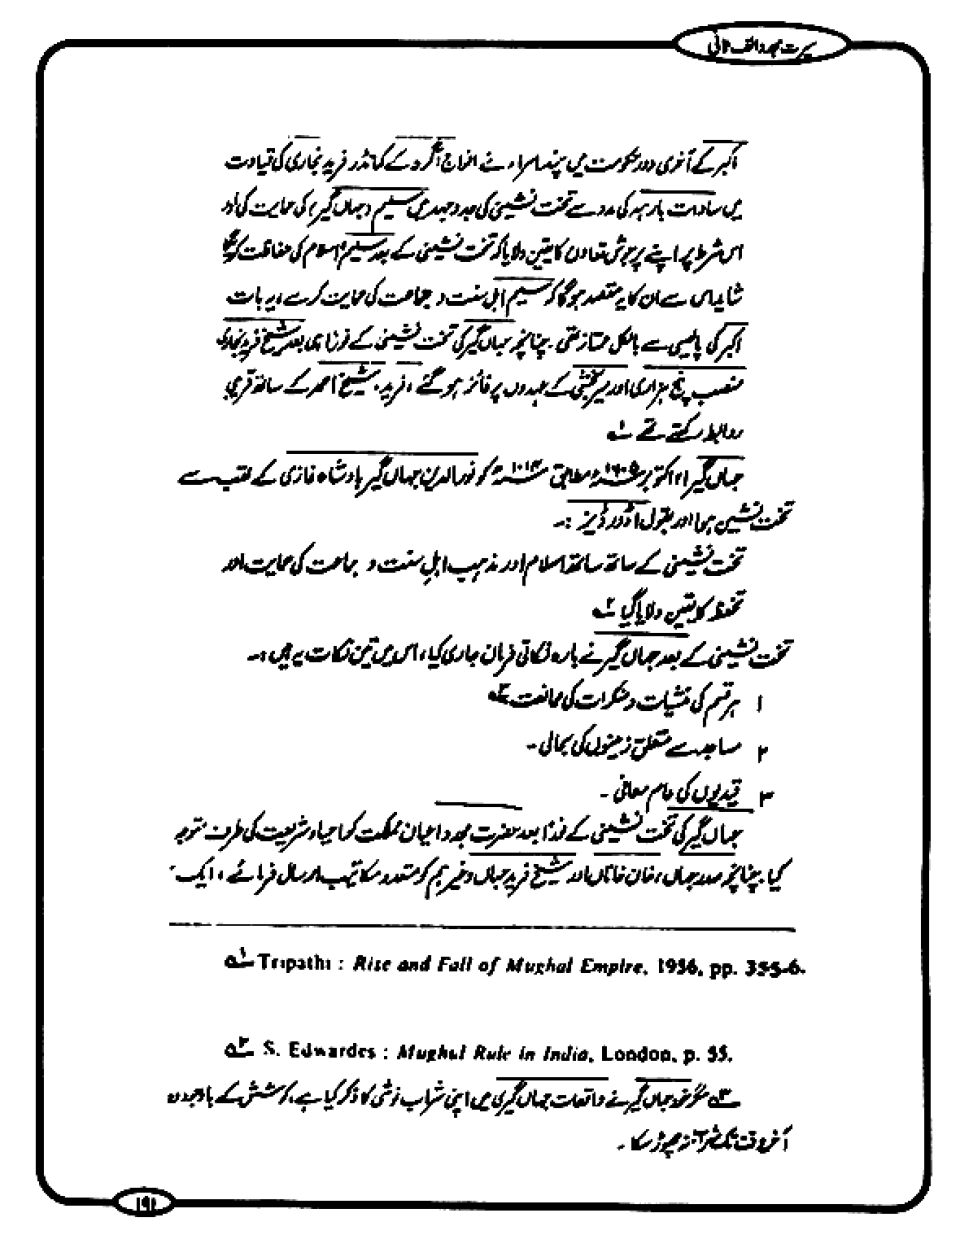 سیرت مجدد الف ثانی
اکبر کے آخری دور حکومت میں چند امراء نے افواج آگرہ کے کمانڈر فرید بخاری کی قیادت
میں سادات بارہہ کی مدد سے تخت نشینی کی جدوجہد میں سلیم (جہاں گیر) کی حمایت کی اور
اس شرط پر اپنے پرجوش تعاون کا یقین دلایا کہ تخت نشینی کے بعد سلیم، اسلام کی حفاظت کریگا
شاید اس سے ان کا یہ مقصد ہوگا کہ سلیم اہل سنت و جماعت کی حمایت کرے، یہ بات
اکبر کی پالیسی سے بالکل ممتاز تھی۔ چنانچہ جہاں گیر کی تخت نشینی کے فوراً ہی بعد شیخ فرید بخاری
منصب پنج ہزاری اور میر بخشی کے عہدوں پر فائز ہو گئے، فرید، شیخ احمد کے ساتھ قریبی
روابط رکھتے تھے ۱؎
جہاں گیر ۲۱ اکتوبر ۱۶۰۵ء مطابق ۱۰۱۴ھ کو نور الدین جہاں گیر بادشاہ غازی کے لقب سے
تخت نشین ہوا اور بقول اڈورڈیز :۔
تخت نشینی کے ساتھ ساتھ اسلام اور مذہب اہل سنت و جماعت کی حمایت اور
تحفظ کا یقین دلایا گیا ۲؎
تخت نشینی کے بعد جہاں گیر نے بارہ نکاتی فرمان جاری کیا، اس میں تین نکات یہ ہیں :۔
۱ ہر قسم کی منشیات و مسکرات کی ممانعت ۳؎
۲ مساجد سے متعلق زمینوں کی بحالی۔
۳ قیدیوں کی عام معافی۔
جہاں گیر کی تخت نشینی کے فوراً بعد حضرت مجدد اعیان مملکت کو احیاء شریعت کی طرف متوجہ
کیا۔ چنانچہ صدر جہاں، خان خاناں اور شیخ فرید جہاں وغیرہم کو متعدد مکاتیب ارسال فرمائے، ایک
۱؎ Tripathi : Rise and Fall of Mughal Empire, 1956, pp. 355-6.
۲؎ S. Edwardes : Mughul Rule in India, London, p. 55.
۳؎ مگر خود جہاں گیر نے واقعات جہاں گیری میں اپنی شراب نوشی کا ذکر کیا ہے، کوشش کے باوجود وہ
آخر وقت تک شراب نہ چھوڑ سکا۔
۱۹۱